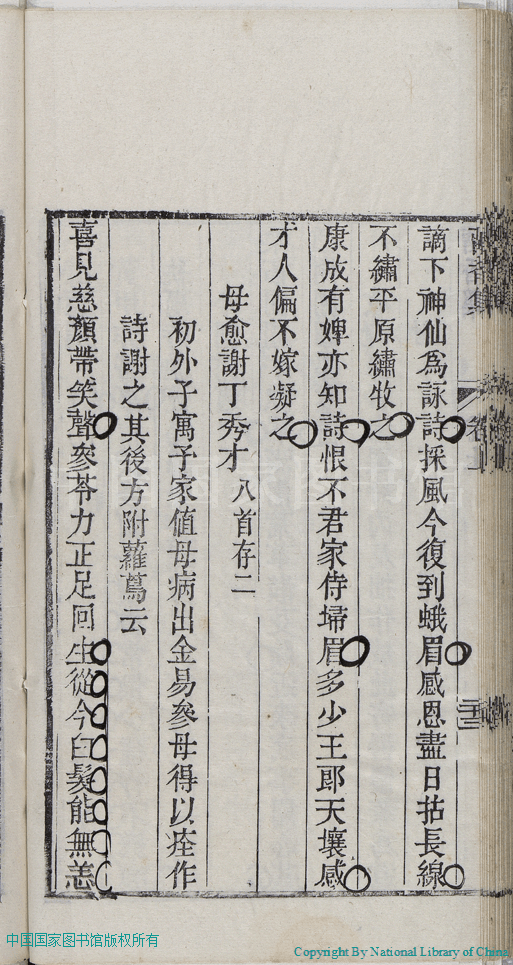 謫下神仙爲詠詩採風今復到蛾眉感恩盡日拈長線
不繡平原繡牧之
康成有婢亦知詩恨不君家侍埽眉多少王郎天壤感
才人偏不嫁凝之
母愈謝丁秀才八首存二
初外子寓予家值母病出金易參母得以痊作
詩謝之其後方附蘿蔦云
喜見慈顏帶笑聲參苓力正足回生從今白髮能無恙
卷上
中国国家图书馆版权所有
Copyright By National Library of China